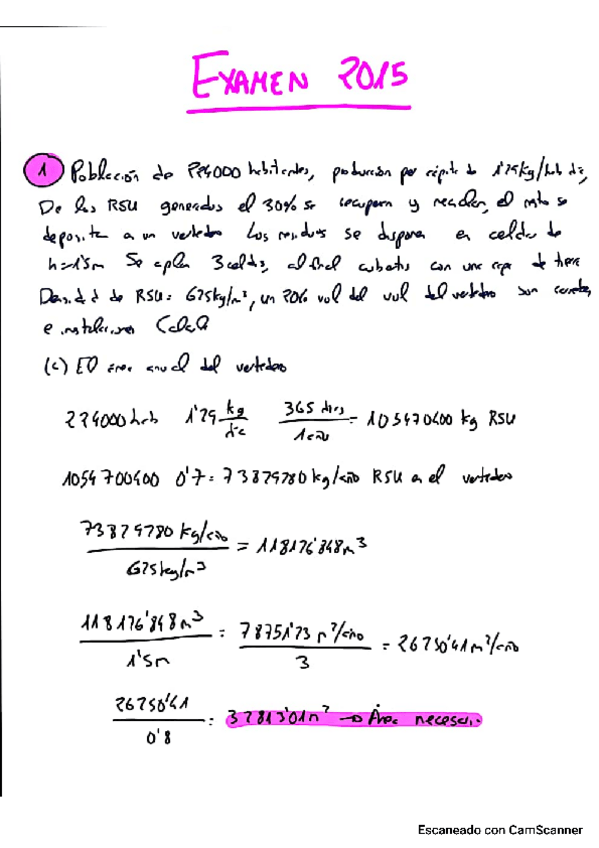 EXAMEN 2015
1 Población de 224000 habitantes, producción per cápita de 1'29 kg/hab día,
De los RSU generados el 30% se recupera y recicla, el resto se
deposita a un vertedero Los residuos se dispone en celdas de
h=1'5m Se apilan 3 celdas, al final cubiertas con una capa de tierra
Densidad de RSU: 625kg/m³, un 20% vol del vol del vertedero son
e instalaciones Calcula
(c) El área anual del vertedero
224000 hab 1'29 kg/día 365 días/1 año = 105470400 kg RSU
1054700400 0'7 = 73829780 kg/año RSU en el vertedero
73829780 kg/año / 625kg/m³ = 118126'848m³
118126'848m³ / 1'5m = 78751'23 m²/año / 3 = 26250'41m²/año
26250'41 / 0'8 = 32813'01m² → Área necesaria
Escaneado con CamScanner